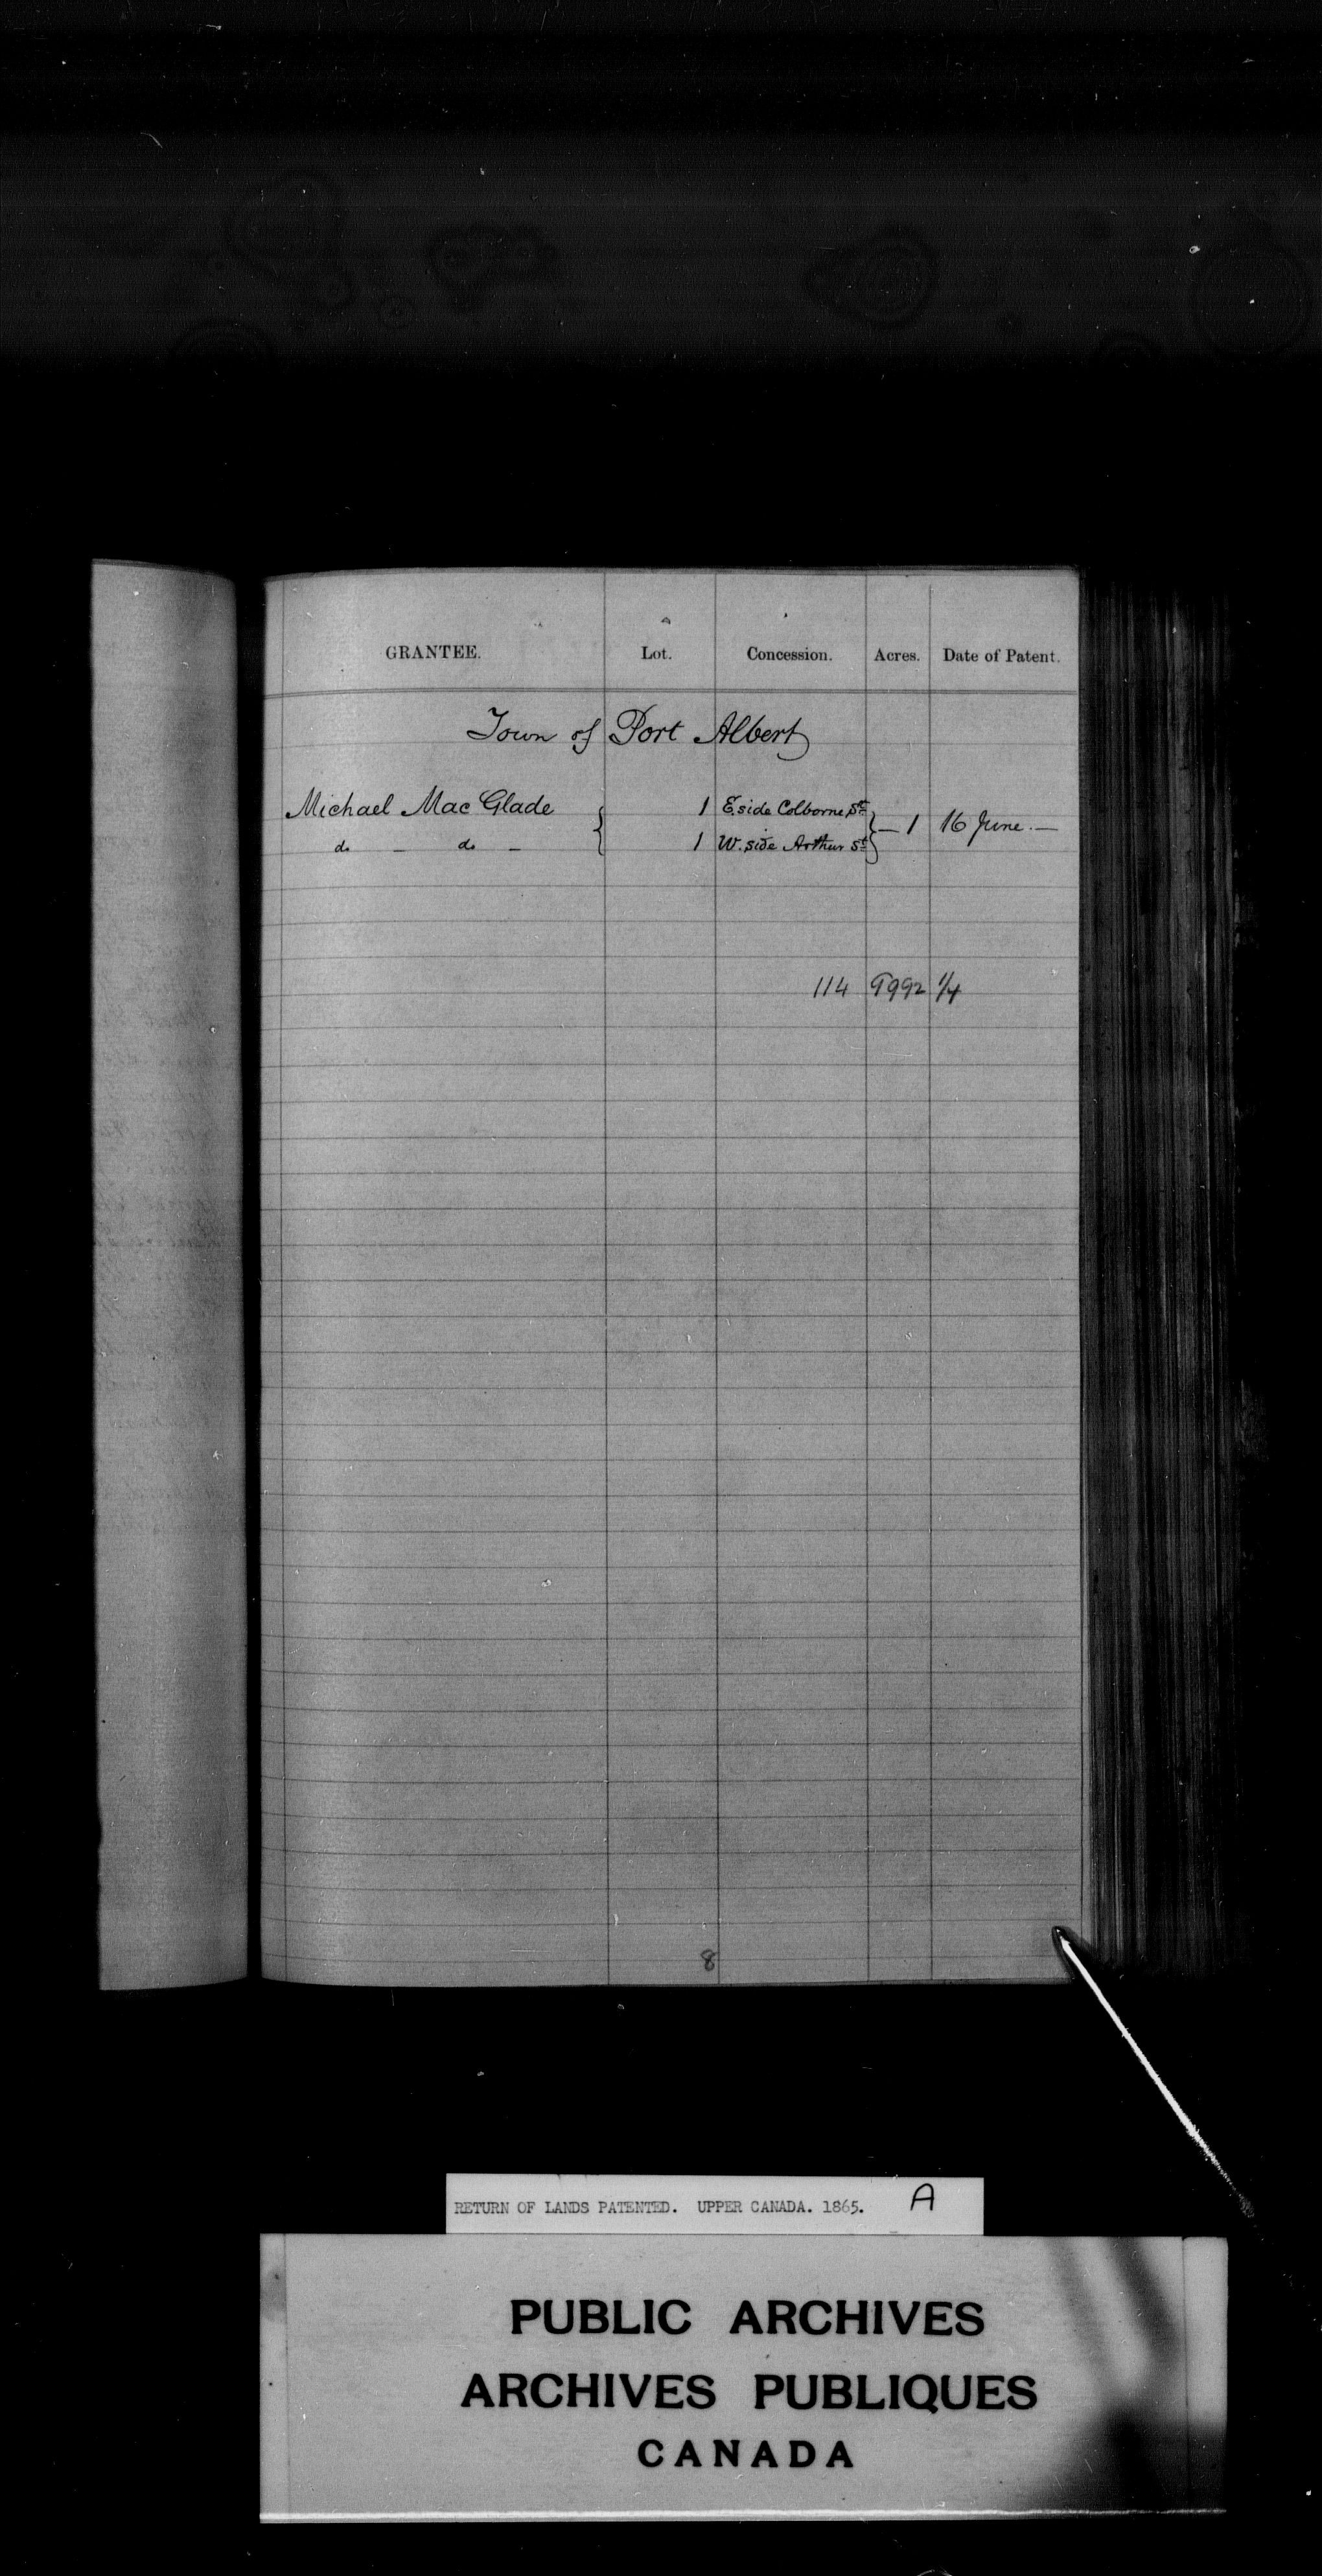 GRANTEE. Lot. Concession. Acres. Date of Patent.
Town of Port Albert
Michael Mac Glade { 1 E. side Colborne St } — 1 16 June. —
do — do — 1 W. side Arthur St
114 9992 1/4
8
RETURN OF LANDS PATENTED. UPPER CANADA. 1865. A
PUBLIC ARCHIVES
ARCHIVES PUBLIQUES
CANADA